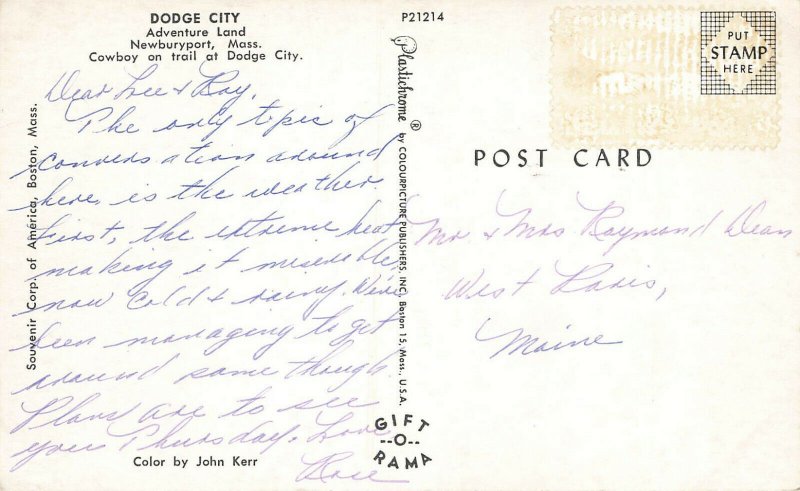 DODGE CITY
Adventure Land
Newburyport, Mass.
Cowboy on trail at Dodge City.
Dear Lee & Ray,
The only topic of
conversation around
here is the weather.
First, the extreme heat
making it miserable,
now cold & rainy. We've
been managing to get
around some though.
Plans are to see
you Thursday. Love
Rose
Color by John Kerr
Souvenir Corp. of America, Boston, Mass.
P21214
Plastichrome ® by COLOURPICTURE PUBLISHERS, INC. Boston 15, Mass., U.S.A.
GIFT
--O--
RAMA
PUT
STAMP
HERE
POST CARD
Mr & Mrs Raymond Dean
West Paris,
Maine